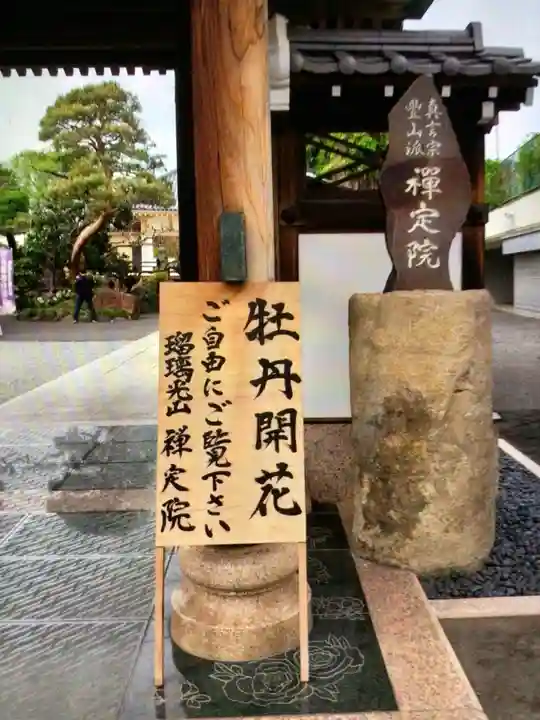 牡丹開花
ご自由にご覧下さい
瑠璃光山 禅定院
真言宗
豊山派
禅定院